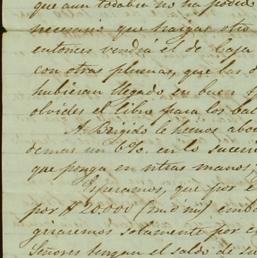 que aun todabia no ha podido
necesario que traigas otro
entonces vendra el de Caja
con otras plumas, que las d
hubieran llegado en buen
olvides el libro para los bal
A. Brigido le hemos abo
demas un 6%. en lo sucesi
que ponga en ntras manos,
Esperamos, que por e
por $20.000 (m/) emba
graremos solamente por e
Señores tengan el saldo de su